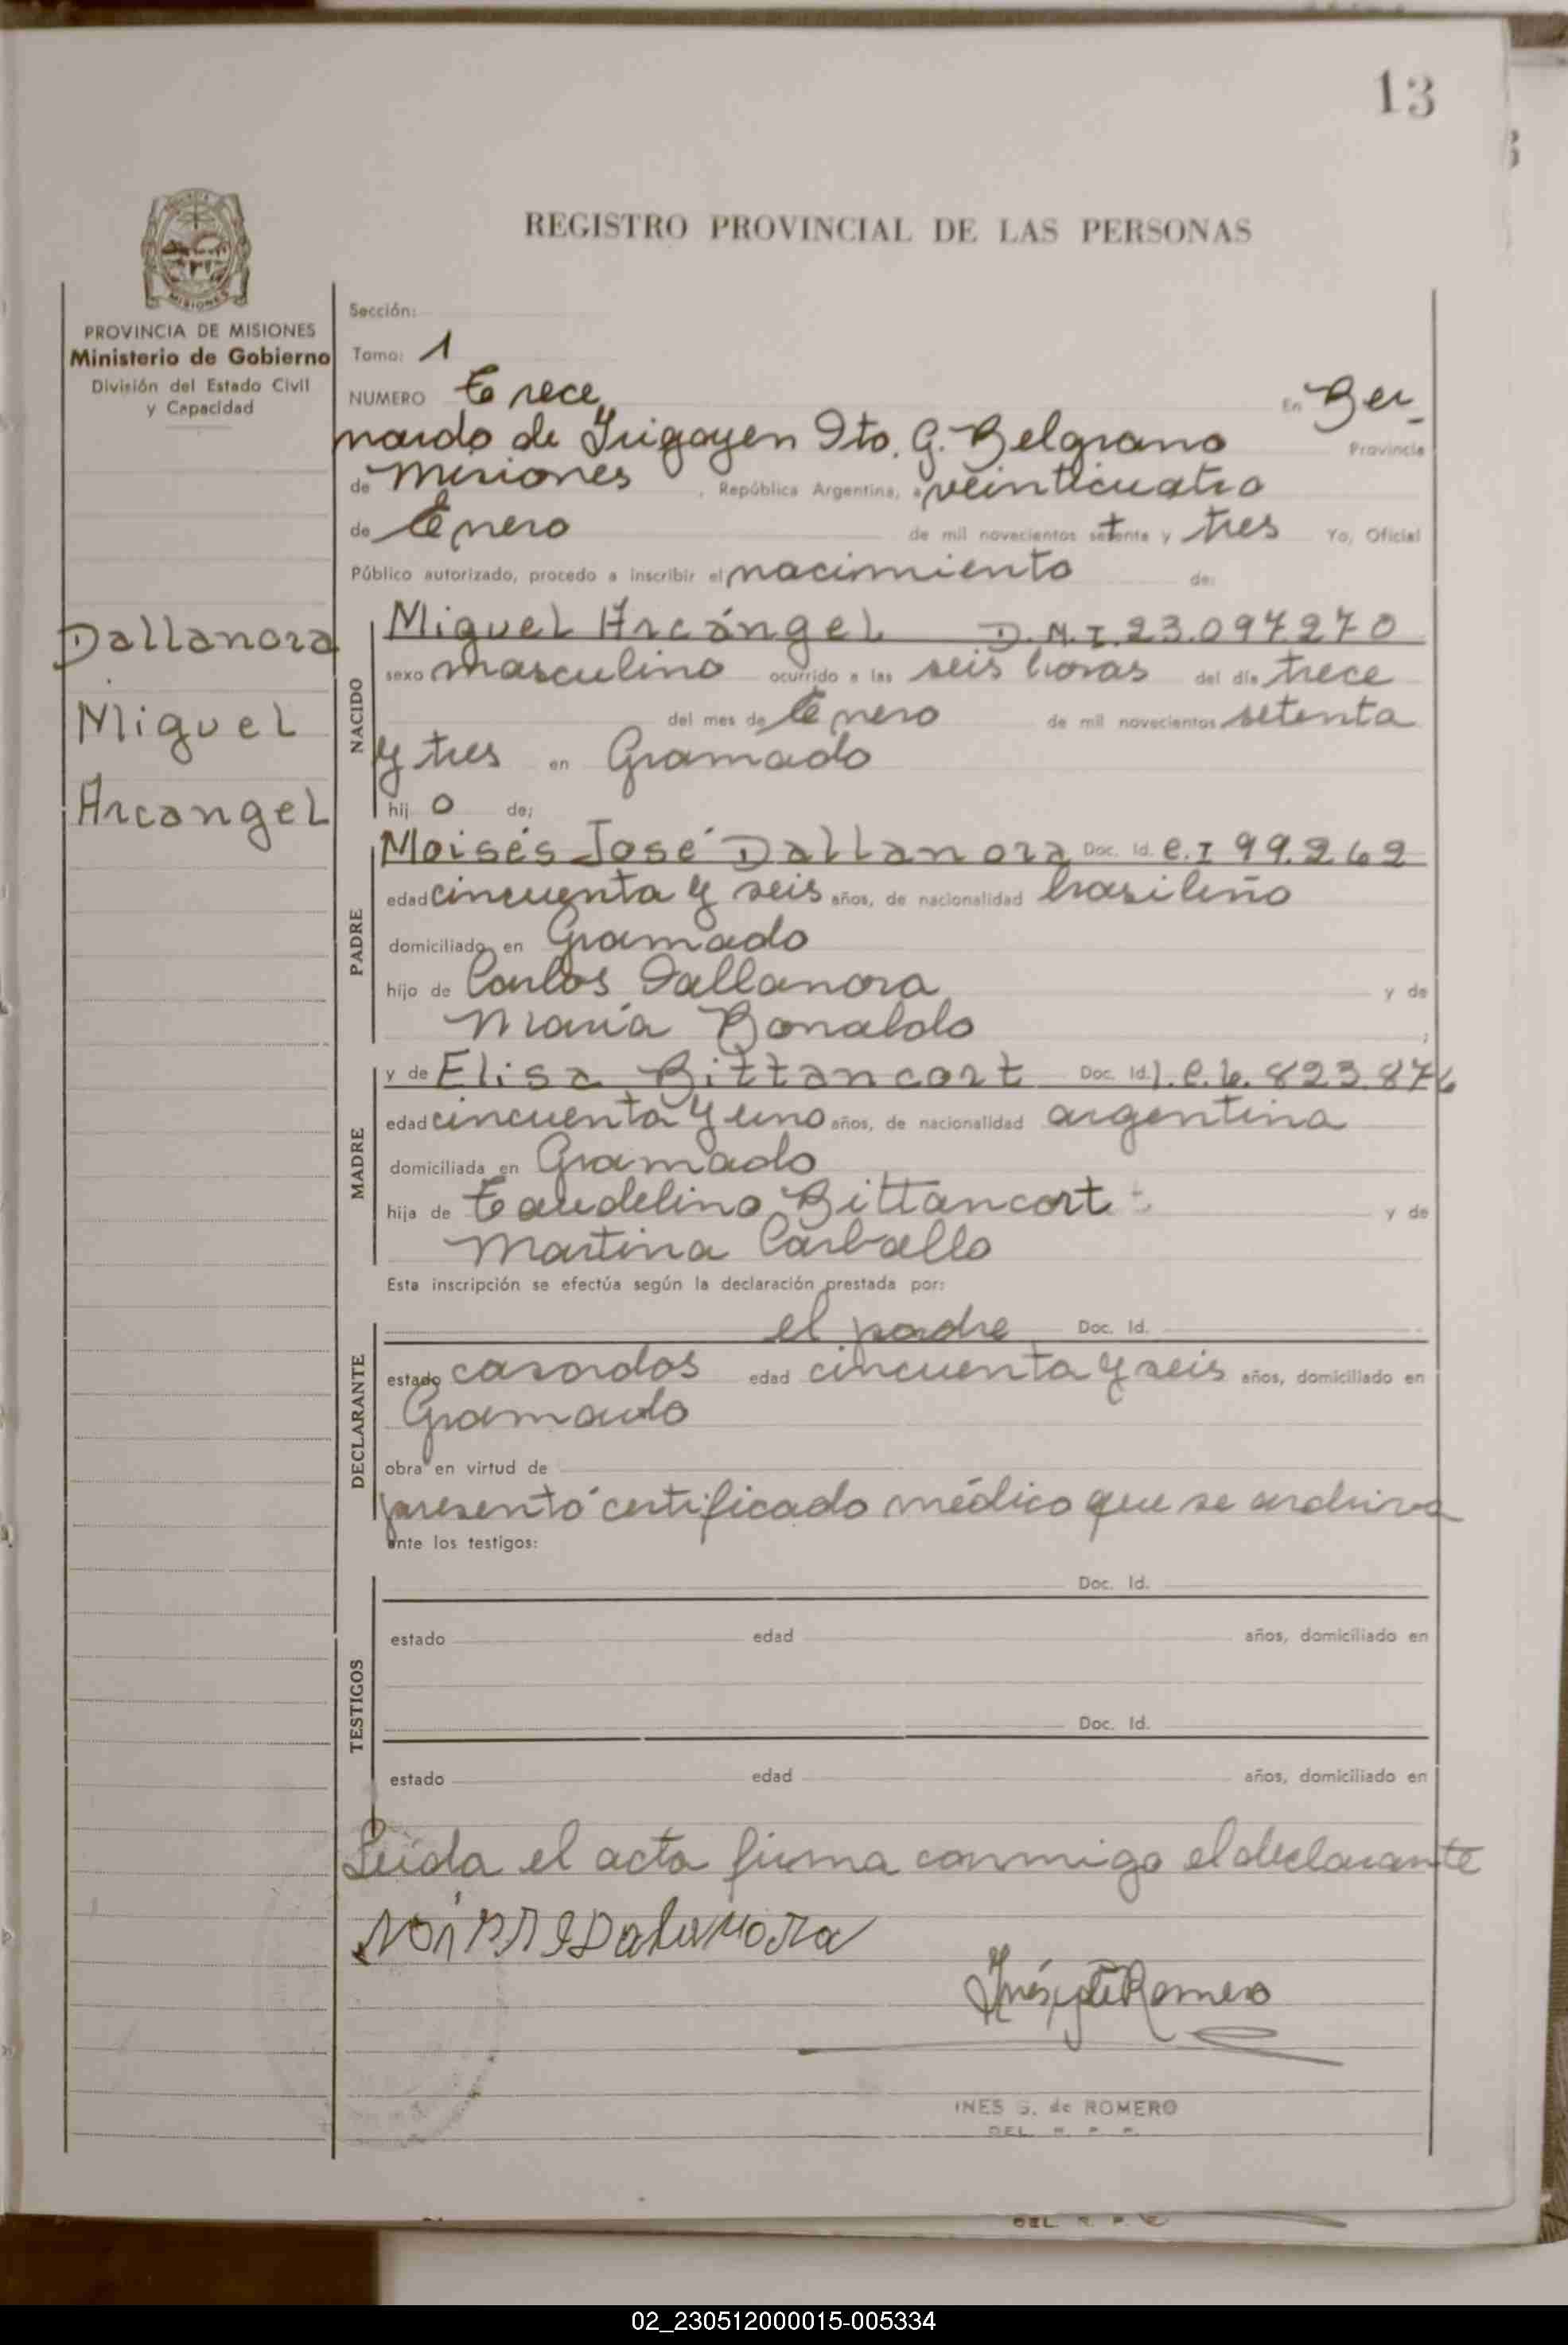 13
REGISTRO PROVINCIAL DE LAS PERSONAS
MISIONES
PROVINCIA DE MISIONES
Ministerio de Gobierno
División del Estado Civil
y Capacidad
Dallanora
Miguel
Arcangel
Sección:
Tomo: 1
NUMERO trece En Ber-
nardo de Irigoyen Dto. G. Belgrano Provincia
de Misiones, República Argentina, a veinticuatro
de Enero de mil novecientos setenta y tres Yo, Oficial
Público autorizado, procedo a inscribir el nacimiento de:
NACIDO
Miguel Arcángel D.N.I. 23.097.270
sexo masculino ocurrido a las seis horas del día trece
del mes de Enero de mil novecientos setenta
y tres en Gramado
hij o de:
PADRE
Moisés José Dallanora Doc. Id. C.I 99.262
edad cincuenta y seis años, de nacionalidad brasileño
domiciliado en Gramado
hijo de Carlos Dallanora y de
María Bonaldo ;
MADRE
y de Elisa Bittancort Doc. Id. L.C. 6.823.876
edad cincuenta y uno años, de nacionalidad argentina
domiciliada en Gramado
hija de Bittancort y de
Martina Carballo
Esta inscripción se efectúa según la declaración prestada por:
DECLARANTE
el padre Doc. Id.
estado casados edad cincuenta y seis años, domiciliado en
Gramado
obra en virtud de
presentó certificado médico que se archiva
ante los testigos:
TESTIGOS
Doc. Id.
estado edad años, domiciliado en
Doc. Id.
estado edad años, domiciliado en
Leída el acta firma conmigo el declarante
Inés de Romero
INES S. de ROMERO
DEL R. P. P.
DEL R. P. P.
02_230512000015-005334